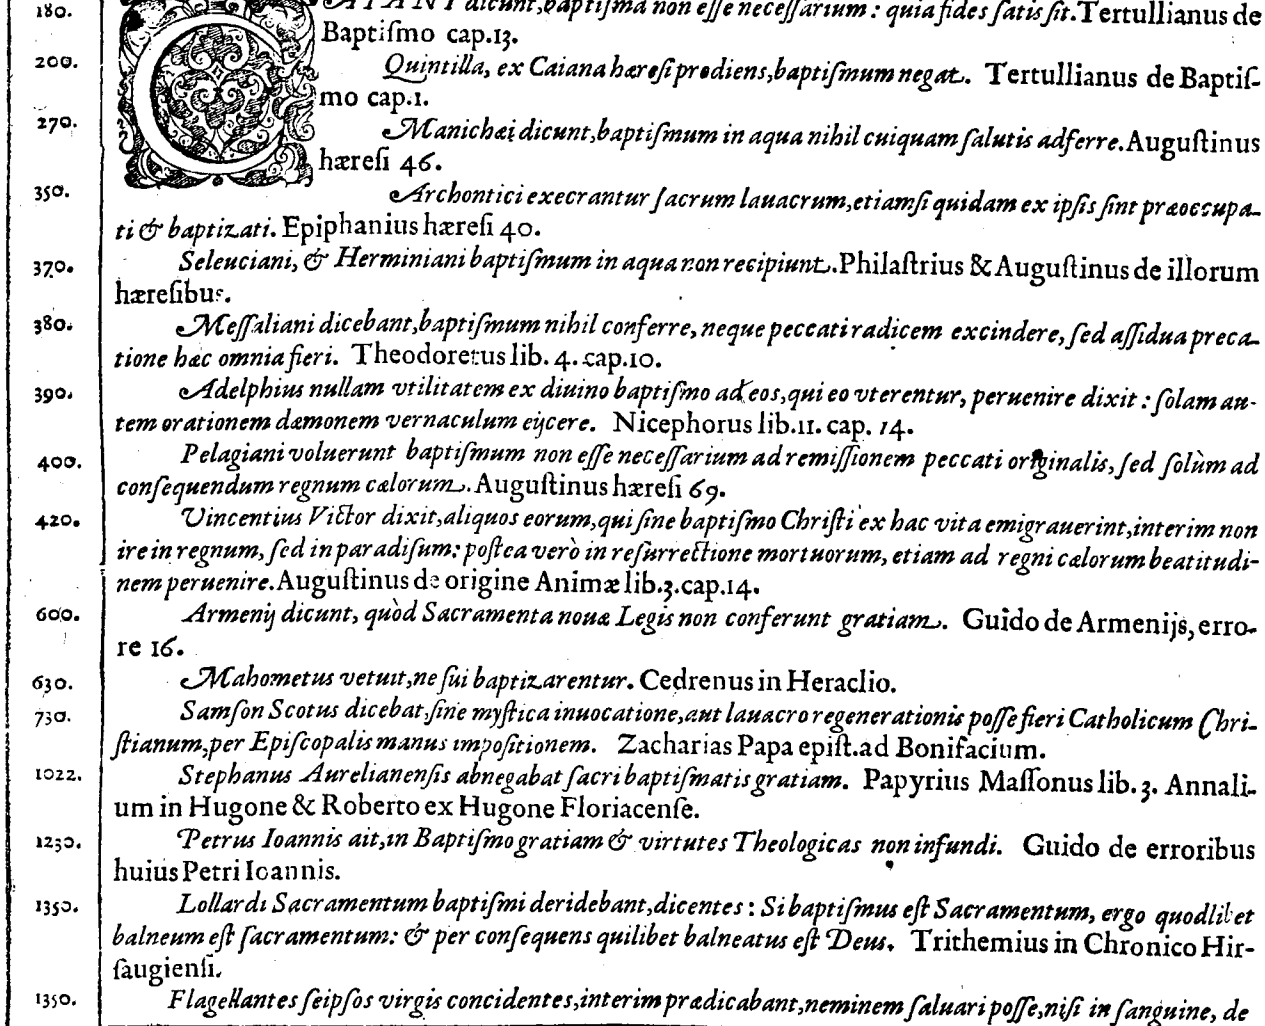 180. CAIANI dicunt, baptiſma non eſſe neceſſarium : quia fides ſatis ſit. Tertullianus de
Baptiſmo cap.13.
200. Quintilla, ex Caiana hæreſi prodiens, baptiſmum negat. Tertullianus de Baptiſ-
mo cap.1.
270. Manichæi dicunt, baptiſmum in aqua nihil cuiquam ſalutis adferre. Auguſtinus
hæreſi 46.
350. Archontici execrantur ſacrum lauacrum, etiamſi quidam ex ipſis ſint præoccupa-
ti & baptizati. Epiphanius hæreſi 40.
370. Seleuciani, & Herminiani baptiſmum in aqua non recipiunt. Philaſtrius & Auguſtinus de illorum
hæreſibus.
380. Meſſaliani dicebant, baptiſmum nihil conferre, neque peccati radicem excindere, ſed aſſidua preca-
tione hæc omnia fieri. Theodoretus lib. 4. cap.10.
390. Adelphius nullam vtilitatem ex diuino baptiſmo ad eos, qui eo vterentur, peruenire dixit : ſolam au-
tem orationem dæmonem vernaculum eijcere. Nicephorus lib.11. cap. 14.
400. Pelagiani voluerunt baptiſmum non eſſe neceſſarium ad remiſſionem peccati originalis, ſed ſolùm ad
conſequendum regnum cælorum. Auguſtinus hæreſi 69.
420. Vincentius Victor dixit, aliquos eorum, qui ſine baptiſmo Chriſti ex hac vita emigrauerint, interim non
ire in regnum, ſed in paradiſum: poſtea verò in reſurrectione mortuorum, etiam ad regni cælorum beatitudi-
nem peruenire. Auguſtinus de origine Animæ lib.3.cap.14.
600. Armenij dicunt, quòd Sacramenta nouæ Legis non conferunt gratiam. Guido de Armenijs, erro-
re 16.
630. Mahometus vetuit, ne ſui baptizarentur. Cedrenus in Heraclio.
730. Samſon Scotus dicebat, ſine myſtica inuocatione, aut lauacro regenerationis poſſe fieri Catholicum Chri-
ſtianum, per Epiſcopalis manus impoſitionem. Zacharias Papa epiſt. ad Bonifacium.
1022. Stephanus Aurelianenſis abnegabat ſacri baptiſmatis gratiam. Papyrius Maſſonus lib. 3. Annali-
um in Hugone & Roberto ex Hugone Floriacenſe.
1230. Petrus Ioannis ait, in Baptiſmo gratiam & virtutes Theologicas non infundi. Guido de erroribus
huius Petri Ioannis.
1350. Lollardi Sacramentum baptiſmi deridebant, dicentes : Si baptiſmus eſt Sacramentum, ergo quodlibet
balneum eſt ſacramentum: & per conſequens quilibet balneatus eſt Deus. Trithemius in Chronico Hir-
ſaugienſi.
1350. Flagellantes ſeipſos virgis concidentes, interim prædicabant, neminem ſaluari poſſe, niſi in ſanguine, de